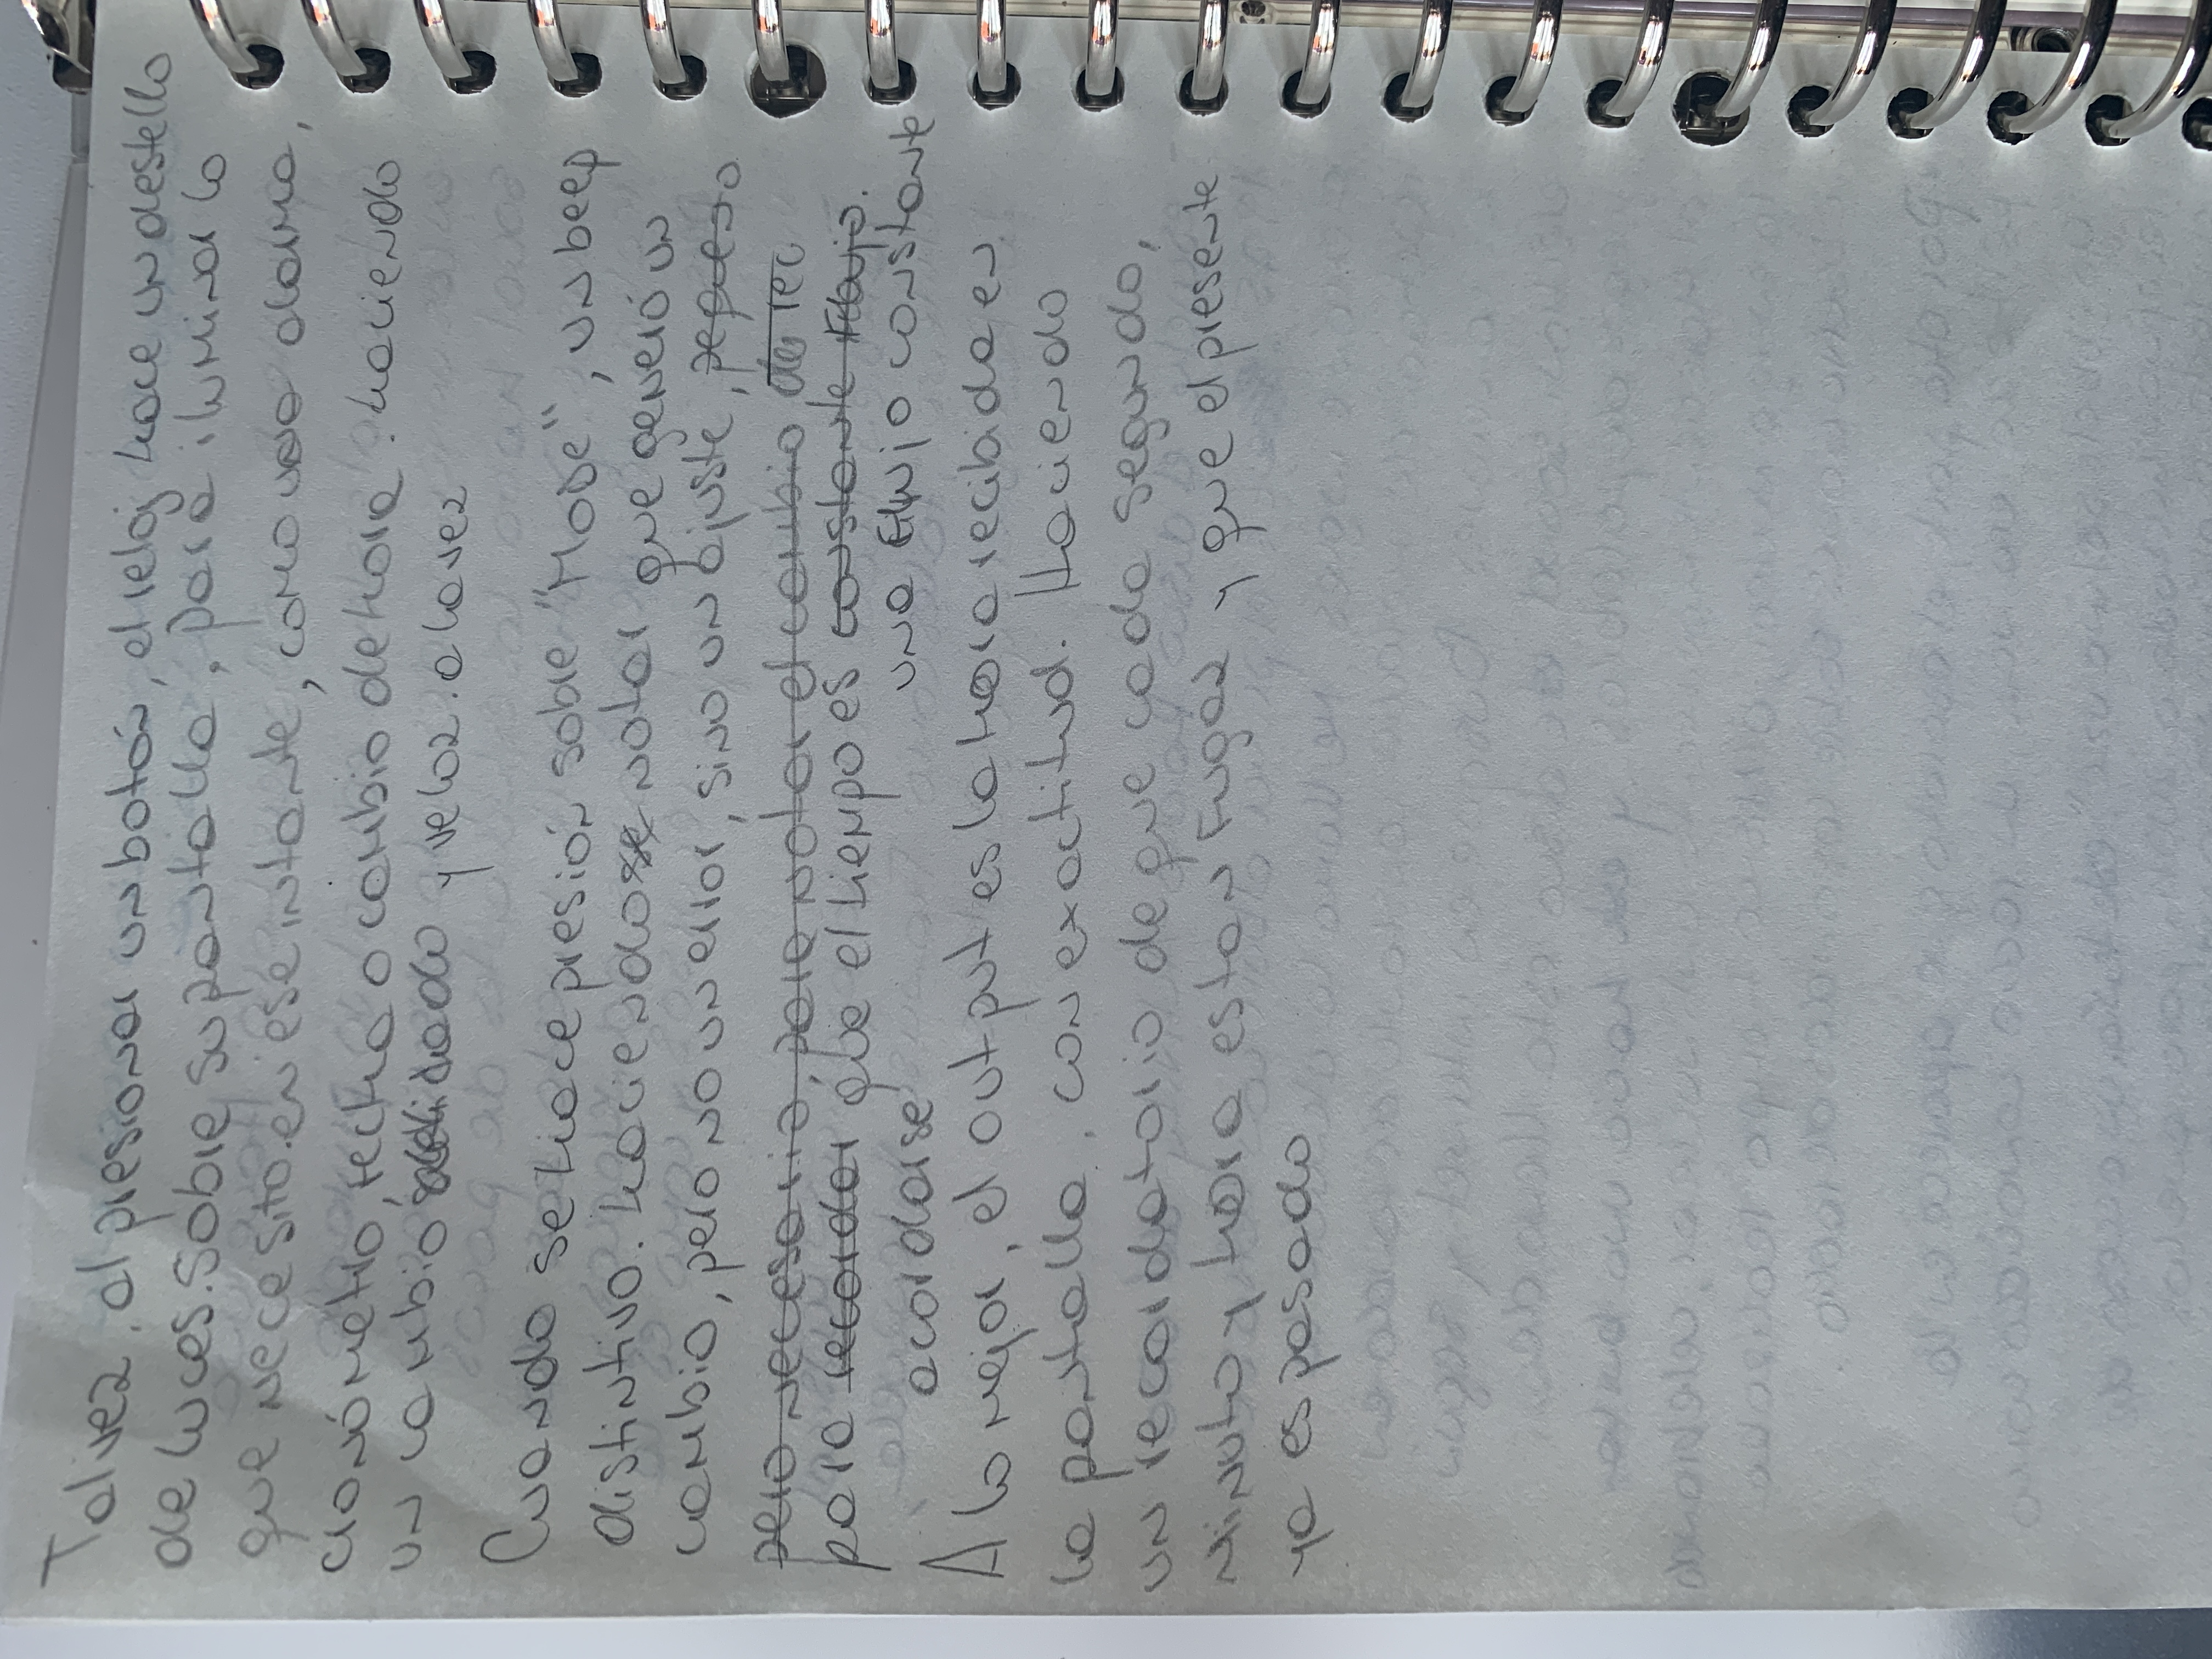 Tal vez, al presionar un botón, el reloj hace un destello
de luces. Sobre su pantalla, para iluminar lo
que necesito. en ese intante, como una alarma,
cronómetro, fecha o cambio de hora. haciendo
un cambio y veloz. a la vez
Cuando se hace presión sobre "Mode", un beep
distintivo. haciendose notar que generó un
cambio, pero no un error, sino un ajuste, pequeño
pero necesario, para notar el cambio de rec
para recordar que el tiempo es constante flujo.
acordarse una flujo constante
A lo mejor, el output es la hora recibida en
la pantalla, con exactitud. Haciendo
un recordatorio de que cada segundo,
minuto y hora es tan Fugáz y que el presente
ya es pasado